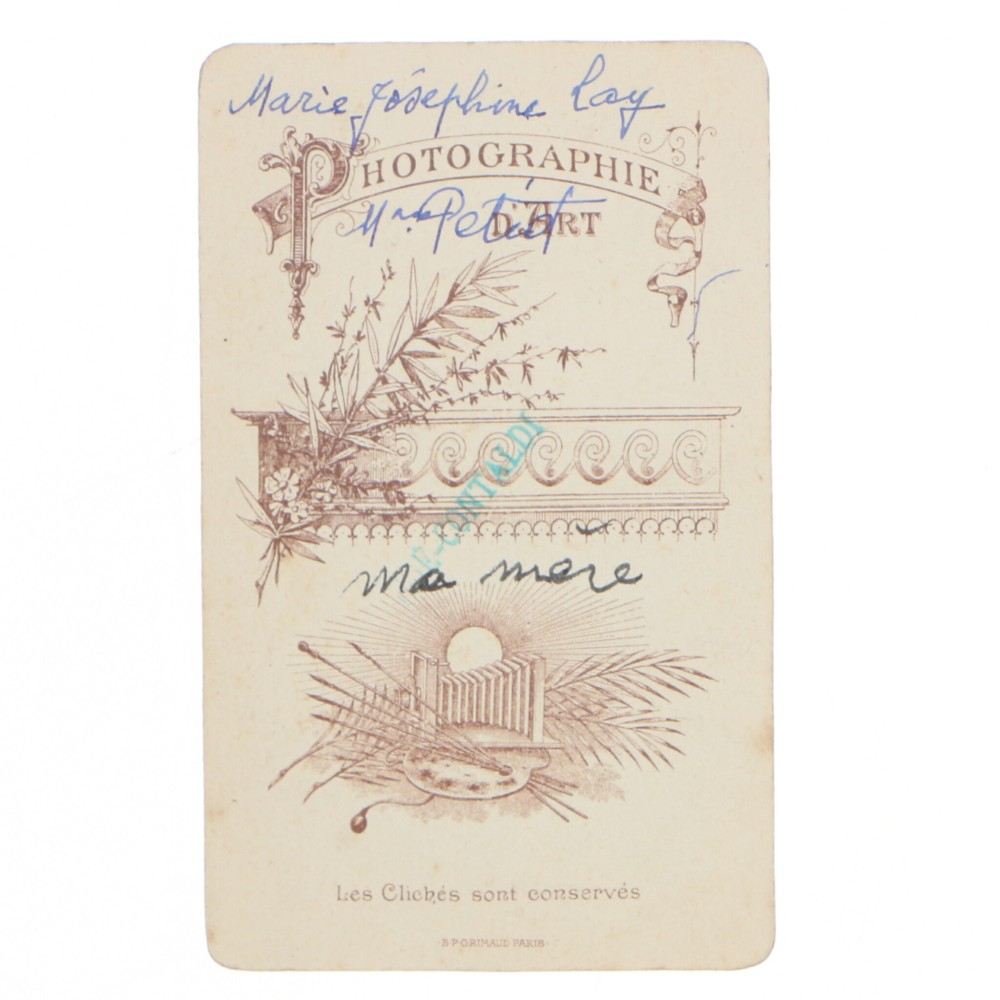 Marie Joséphine Lay
PHOTOGRAPHIE
Mme Petiot
D'ART
E-CONTALDI
ma mère
Les Clichés sont conservés
B.P. GRIMAUD PARIS